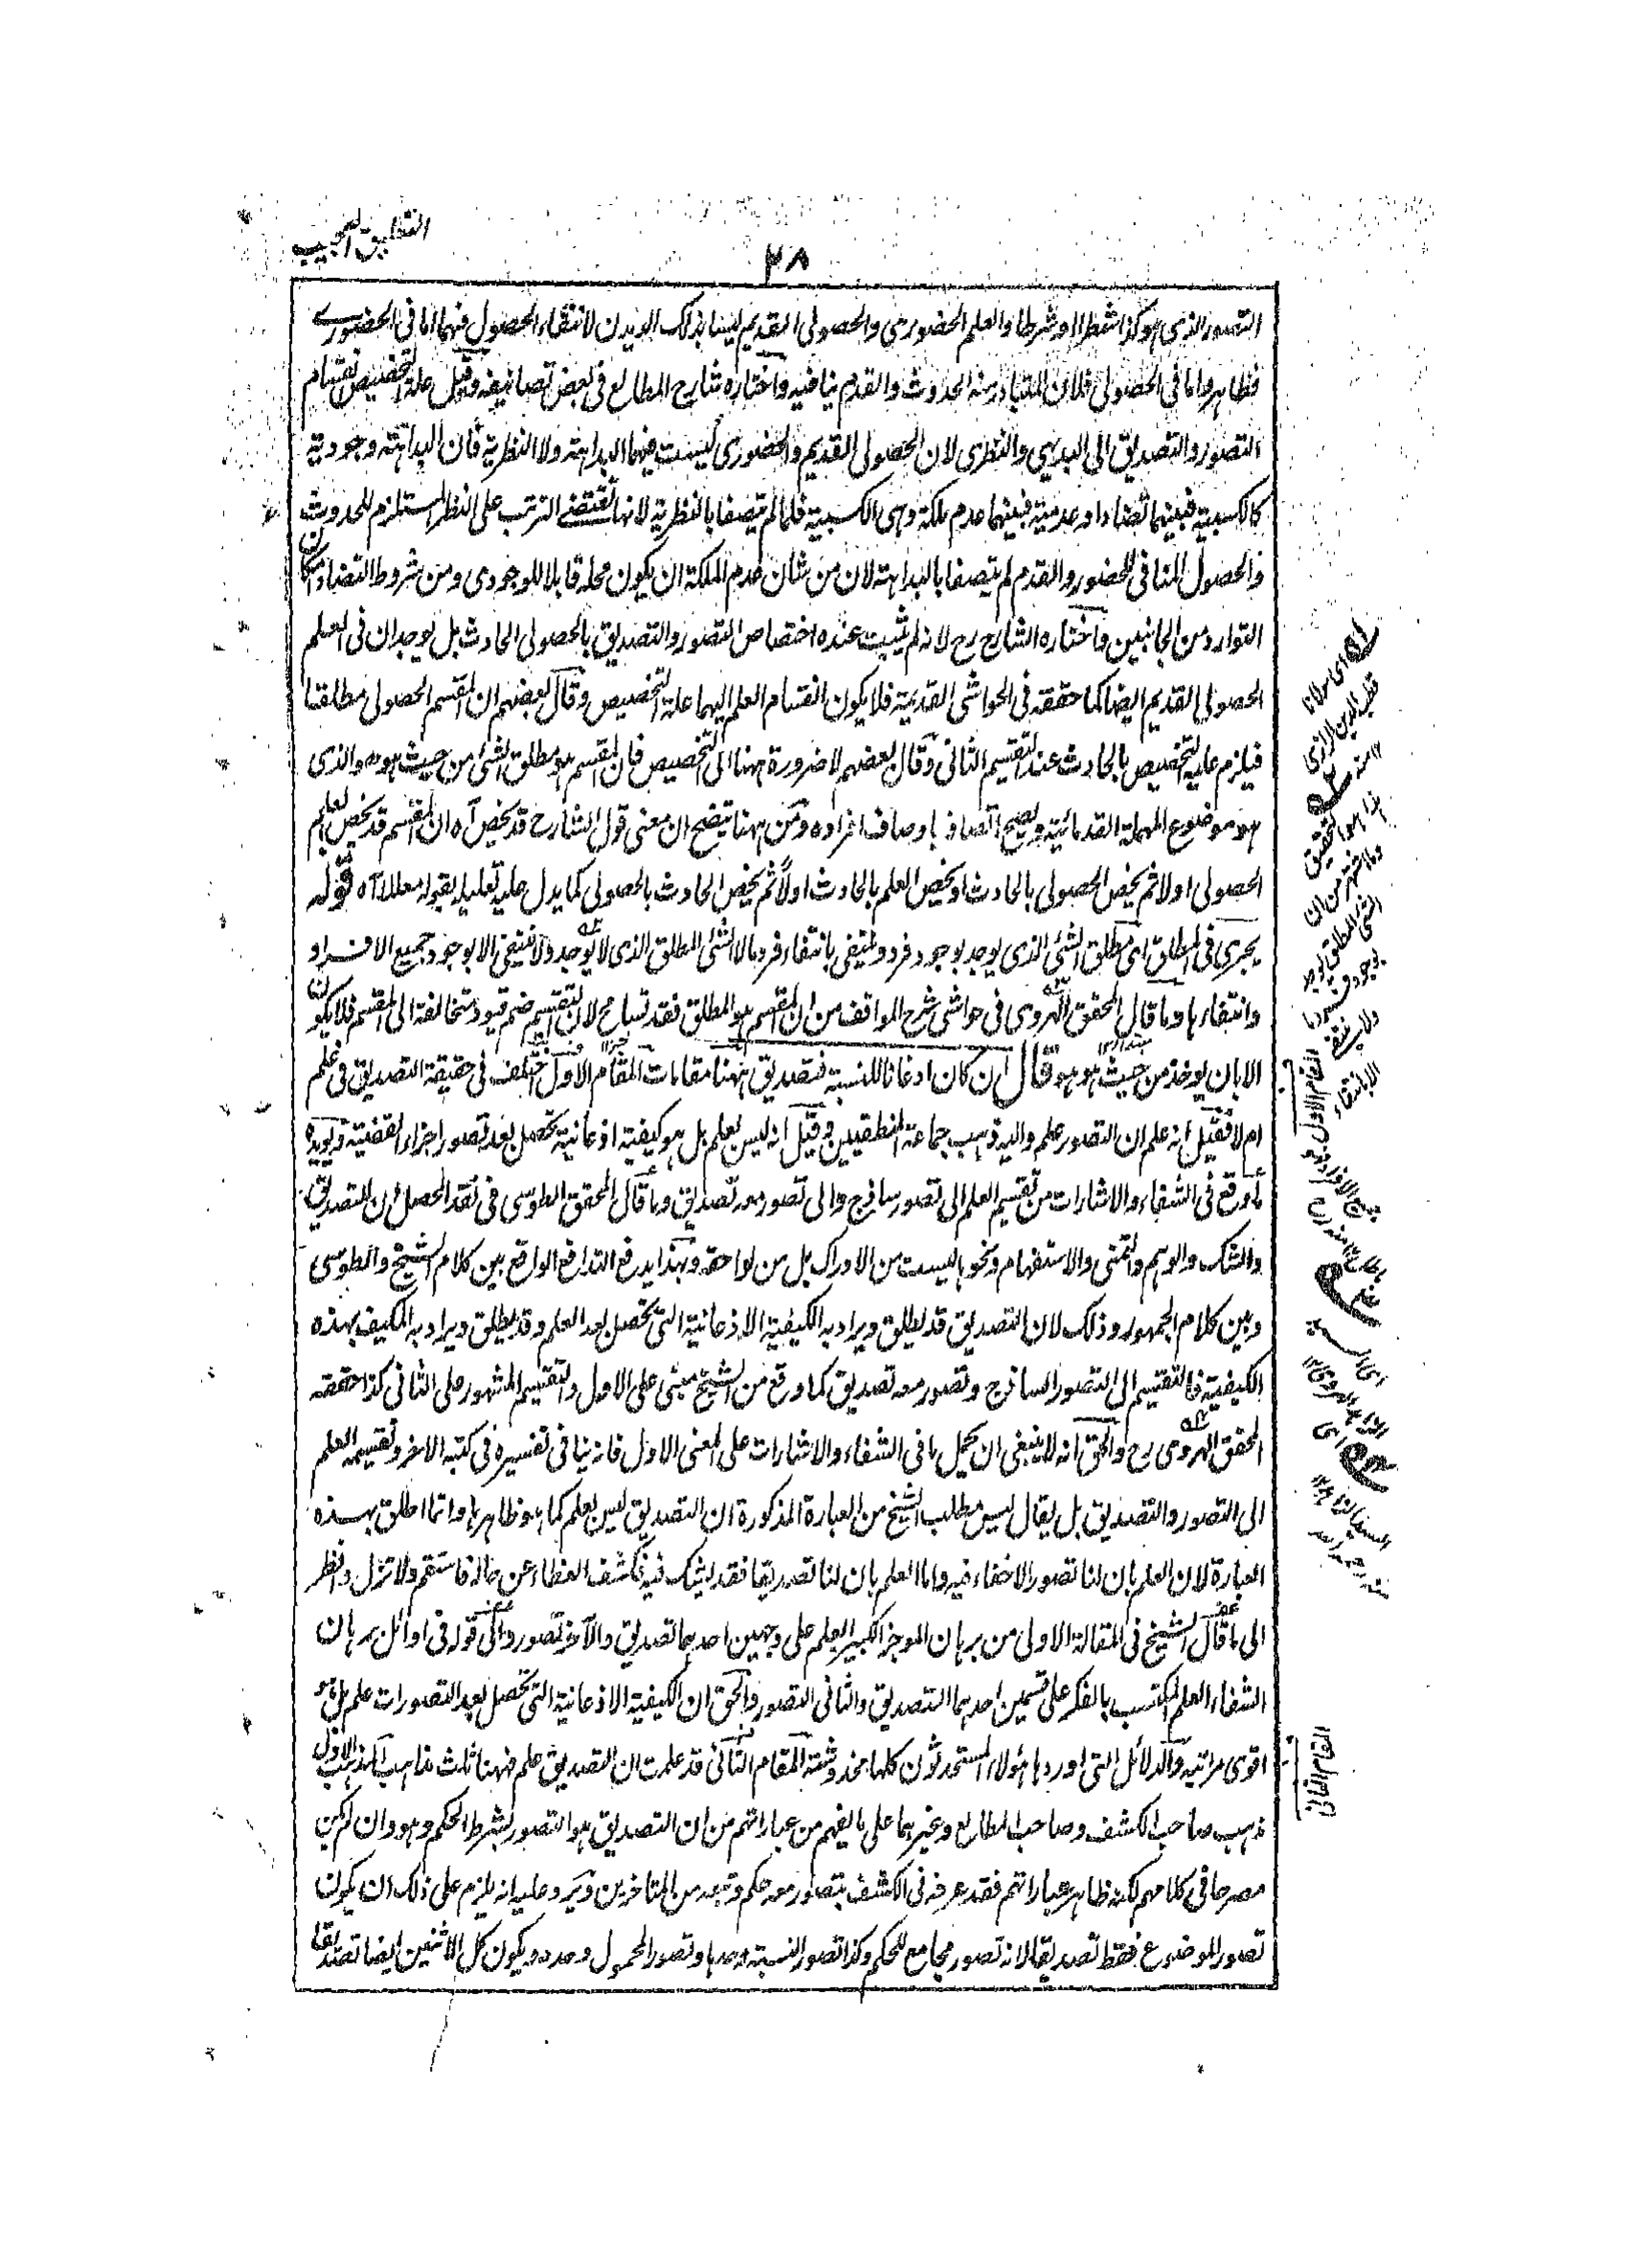 التعليق العجيب
٢٨
التصور الذى هو كذا شطرا او شرطا والعلم الحضورى والحصولى القديم ليسا بذلك البديدن لانتفاء الحصول فيهما اما فى الحضورى
فظاهر واما فى الحصولى فلان المتبادر منه الحدوث والقدم ينافيه واختاره شارح المطالع فى بعض تصانيفه وقيل علة التخصيص انقسام
التصور والتصديق الى البديهى والنظرى لان الحصولى القديم والحضورى ليست فيهما البداهة ولا النظرية فان البداهة وجودية
كالكسبية فبينهما تضاد او عدمية فبينهما عدم ملكة وهى الكسبية فلما لم يتصفا بالنظرية لانها تقتضى الترتب على النظر المستلزم للحدوث
والحصول المنافى للحضور والقدم لم يتصفا بالبداهة لان من شان عدم الملكة ان يكون محله قابلا للوجودى ومن شروط التضاد امكان
التوارد من الجانبين واختاره الشارح رح لانه لم يثبت عنده اختصاص التصور والتصديق بالحصولى الحادث بل يوجدان فى العلم
الحصولى القديم ايضا كما حققه فى الحواشى القديمة فلا يكون انقسام العلم اليهما علة التخصيص وقال بعضهم ان المقسم الحصولى مطلقا
فيلزم عليه التخصيص بالحادث عند التقسيم الثانى وقال بعضهم لا ضرورة ههنا الى التخصيص فان المقسم هو مطلق الشئ من حيث هو هو والذى
هو موضوع المهملة القدمائية ويصح اتصافه باوصاف افراده ومن ههنا يتضح ان معنى قول الشارح قد يخص آه ان المقسم قد يخص العلم
الحصولى اولا ثم يخص الحصولى بالحادث او يخص العلم بالحادث اولا ثم يخص الحادث بالحصولى كما يدل عليه تعليله بقوله معللا آه قوله
يجرى فى المطلق اى مطلق الشئ الذى يوجد بوجود فرد وينتفى بانتفاء فرد ما لا الشئ المطلق الذى لا يوجد ولا ينتفى الا بوجود جميع الافراد
وانتفاءها وما قال المحقق الهروى فى حواشى شرح المواقف من ان المقسم هو المطلق فقد تسامح لان التقسيم ضم قيود متخالفة الى المقسم فلا يكون
الا بان يوخذ من حيث هو هو قال ان كان اذعانا للنسبة فتصديق ههنا مقامات المقام الاول اختلف فى حقيقة التصديق فى علم
ام لا فقيل انه علم ان التصور علم واليه ذهب جماعة المنطقيين وقيل انه ليس بعلم بل هو كيفية اذعانية تحصل بعد تصور اجزاء القضية ويؤيده
ما وقع فى الشفاء والاشارات من تقسيم العلم الى تصور ساذج والى تصور معه تصديق وما قال المحقق الطوسى فى نقد المحصل ان التصديق
والشك والوهم والتمنى والاستفهام ونحوها ليست من الادراك بل من لواحقه وبهذا يدفع التدافع الواقع بين كلام الشيخ والطوسى
وبين كلام الجمهور وذلك لان التصديق قد يطلق ويراد به الكيفية الاذعانية التى تحصل بعد العلم وقد يطلق ويراد به المكيف بهذه
الكيفية فالتقسيم الى التصور الساذج وتصور معه تصديق كما وقع من الشيخ مبنى على الاول والتقسيم المشهور على الثانى كذا حققه
المحقق الهروى رح والحق انه لا ينبغى ان يحمل ما فى الشفاء والاشارات على المعنى الاول فانه ينافى تفسيره فى كتبه الاخر وتقسيمه العلم
الى التصور والتصديق بل يقال ليس مطلب الشيخ من العبارة المذكورة ان التصديق ليس بعلم كما هو ظاهرها وانما اطلق بهذه
العبارة لان العلم بان لنا تصورا لاخفاء فيه واما العلم بان لنا تصديقا فقد يشك فيه فكاشف الغطاء عن حاله فاستقم ولا تزل وانظر
الى ما قال الشيخ فى المقالة الاولى من برهان الموجز الكبير العلم على وجهين احدهما تصديق والآخر تصور والى قوله فى اوائل برهان
الشفاء العلم المكتسب بالفكر على قسمين احدهما التصديق والثانى التصور والحق ان الكيفية الاذعانية التى تحصل بعد التصورات علم بل هو
اقوى مراتبه والدلائل التى اوردها هؤلاء المستحدثون كلها مخدوشة المقام الثانى قد علمت ان التصديق علم فههنا ثلث مذاهب المذهب الاول
ذهب صاحب الكشف وصاحب المطالع وغيرهما على ما يفهم من عباراتهم من ان التصديق هو التصور بشرط الحكم وهو وان لم يكن
مصرحا فى كلامهم لكنه ظاهر عباراتهم فقد عرفه فى الكشف بتصور معه حكم وتبعه من المتاخرين ويرد عليه انه يلزم على ذلك ان يكون
تصور الموضوع فقط تصديقا لانه تصور مجامع للحكم وكذا تصور النسبة وحدها وتصور المحمول وحده ويكون كل الاثنين ايضا تصديقا
اى مولانا
قطب الدين الرازى
١٢ منه
هذا هو التحقيق
وما اشتهر من ان
الشئ المطلق يوجد
بوجود فرد ما
ولا ينتفى
الا بانتفاء
جميع الافراد
المقام الاول
المقام الثانى